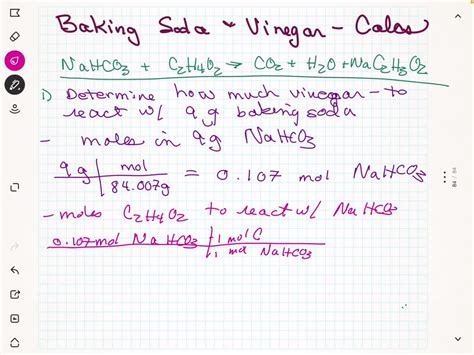 Baking Soda & Vinegar - Calcs
NaHCO3 + C2H4O2 → CO2 + H2O + NaC2H3O2
1) Determine how much vinegar - to
react w/ 9 g baking soda
- moles in 9g NaHCO3
9g | mol
84.007g = 0.107 mol NaHCO3
- moles C2H4O2 to react w/ NaHCO3
0.107 mol NaHCO3 | 1 mol C
1 mol NaHCO3